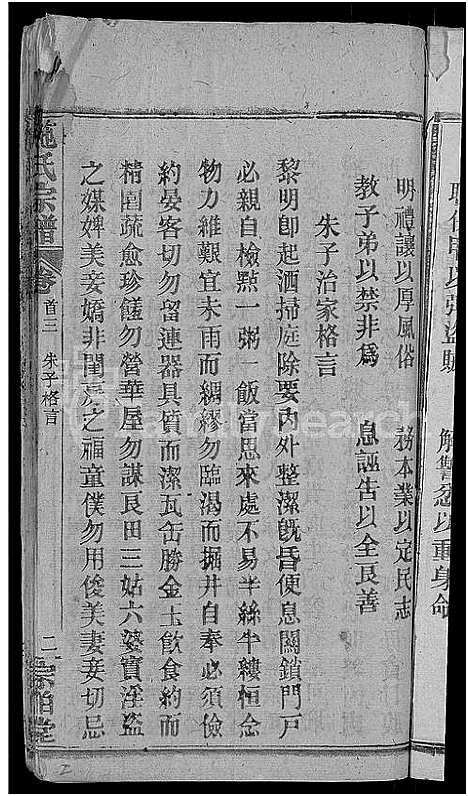 明禮讓以厚風俗　務本業以定民志
教子弟以禁非爲　息誣告以全良善
朱子治家格言
黎明卽起洒掃庭除要內外整潔旣昏便息關鎖門戶
必親自檢點一粥一飯當思來處不易半絲半縷恒念
物力維艱宜未雨而綢繆勿臨渴而掘井自奉必須儉
約晏客切勿留連器具質而潔瓦缶勝金玉飮食約而
精園蔬愈珍饈勿營華屋勿謀良田三姑六婆實淫盜
之媒婢美妾嬌非閨房之福童僕勿用俊美妻妾切忌
施氏宗譜
卷
首三
朱子格言
二
解讐忿以重身命
FamilySearch